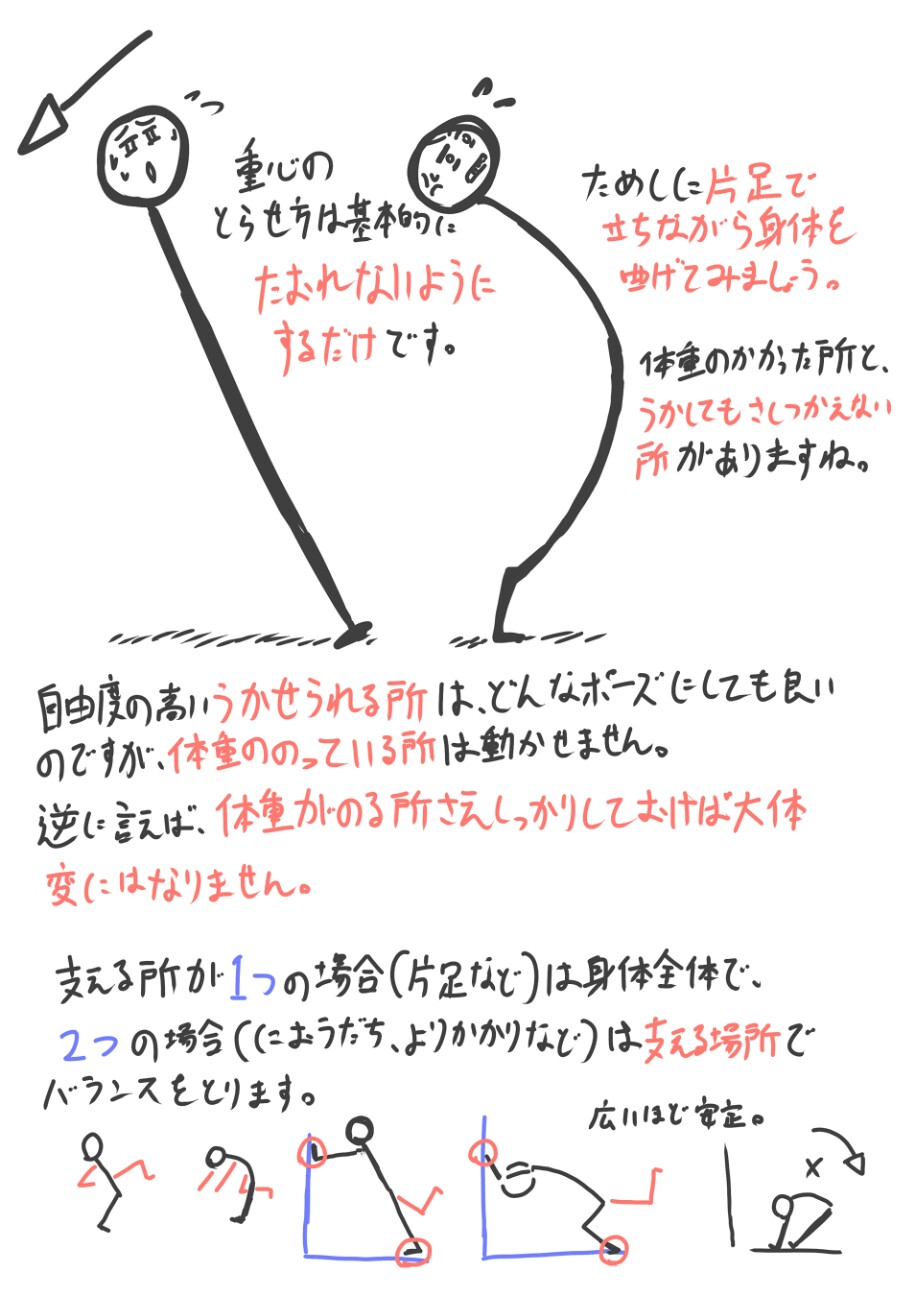 重心の
とらせ方は基本的に
たおれないように
するだけです。
ためしに片足で
立ちながら身体を
曲げてみましょう。
体重のかかった所と、
うかしてもさしつかえない
所がありますね。
自由度の高いうかせられる所は、どんなポーズにしても良い
のですが、体重ののっている所は動かせません。
逆に言えば、体重がのる所さえしっかりしておけば大体
変にはなりません。
支える所が1つの場合(片足など)は身体全体で、
2つの場合(におうだち、よりかかりなど)は支える場所で
バランスをとります。
広いほど安定。